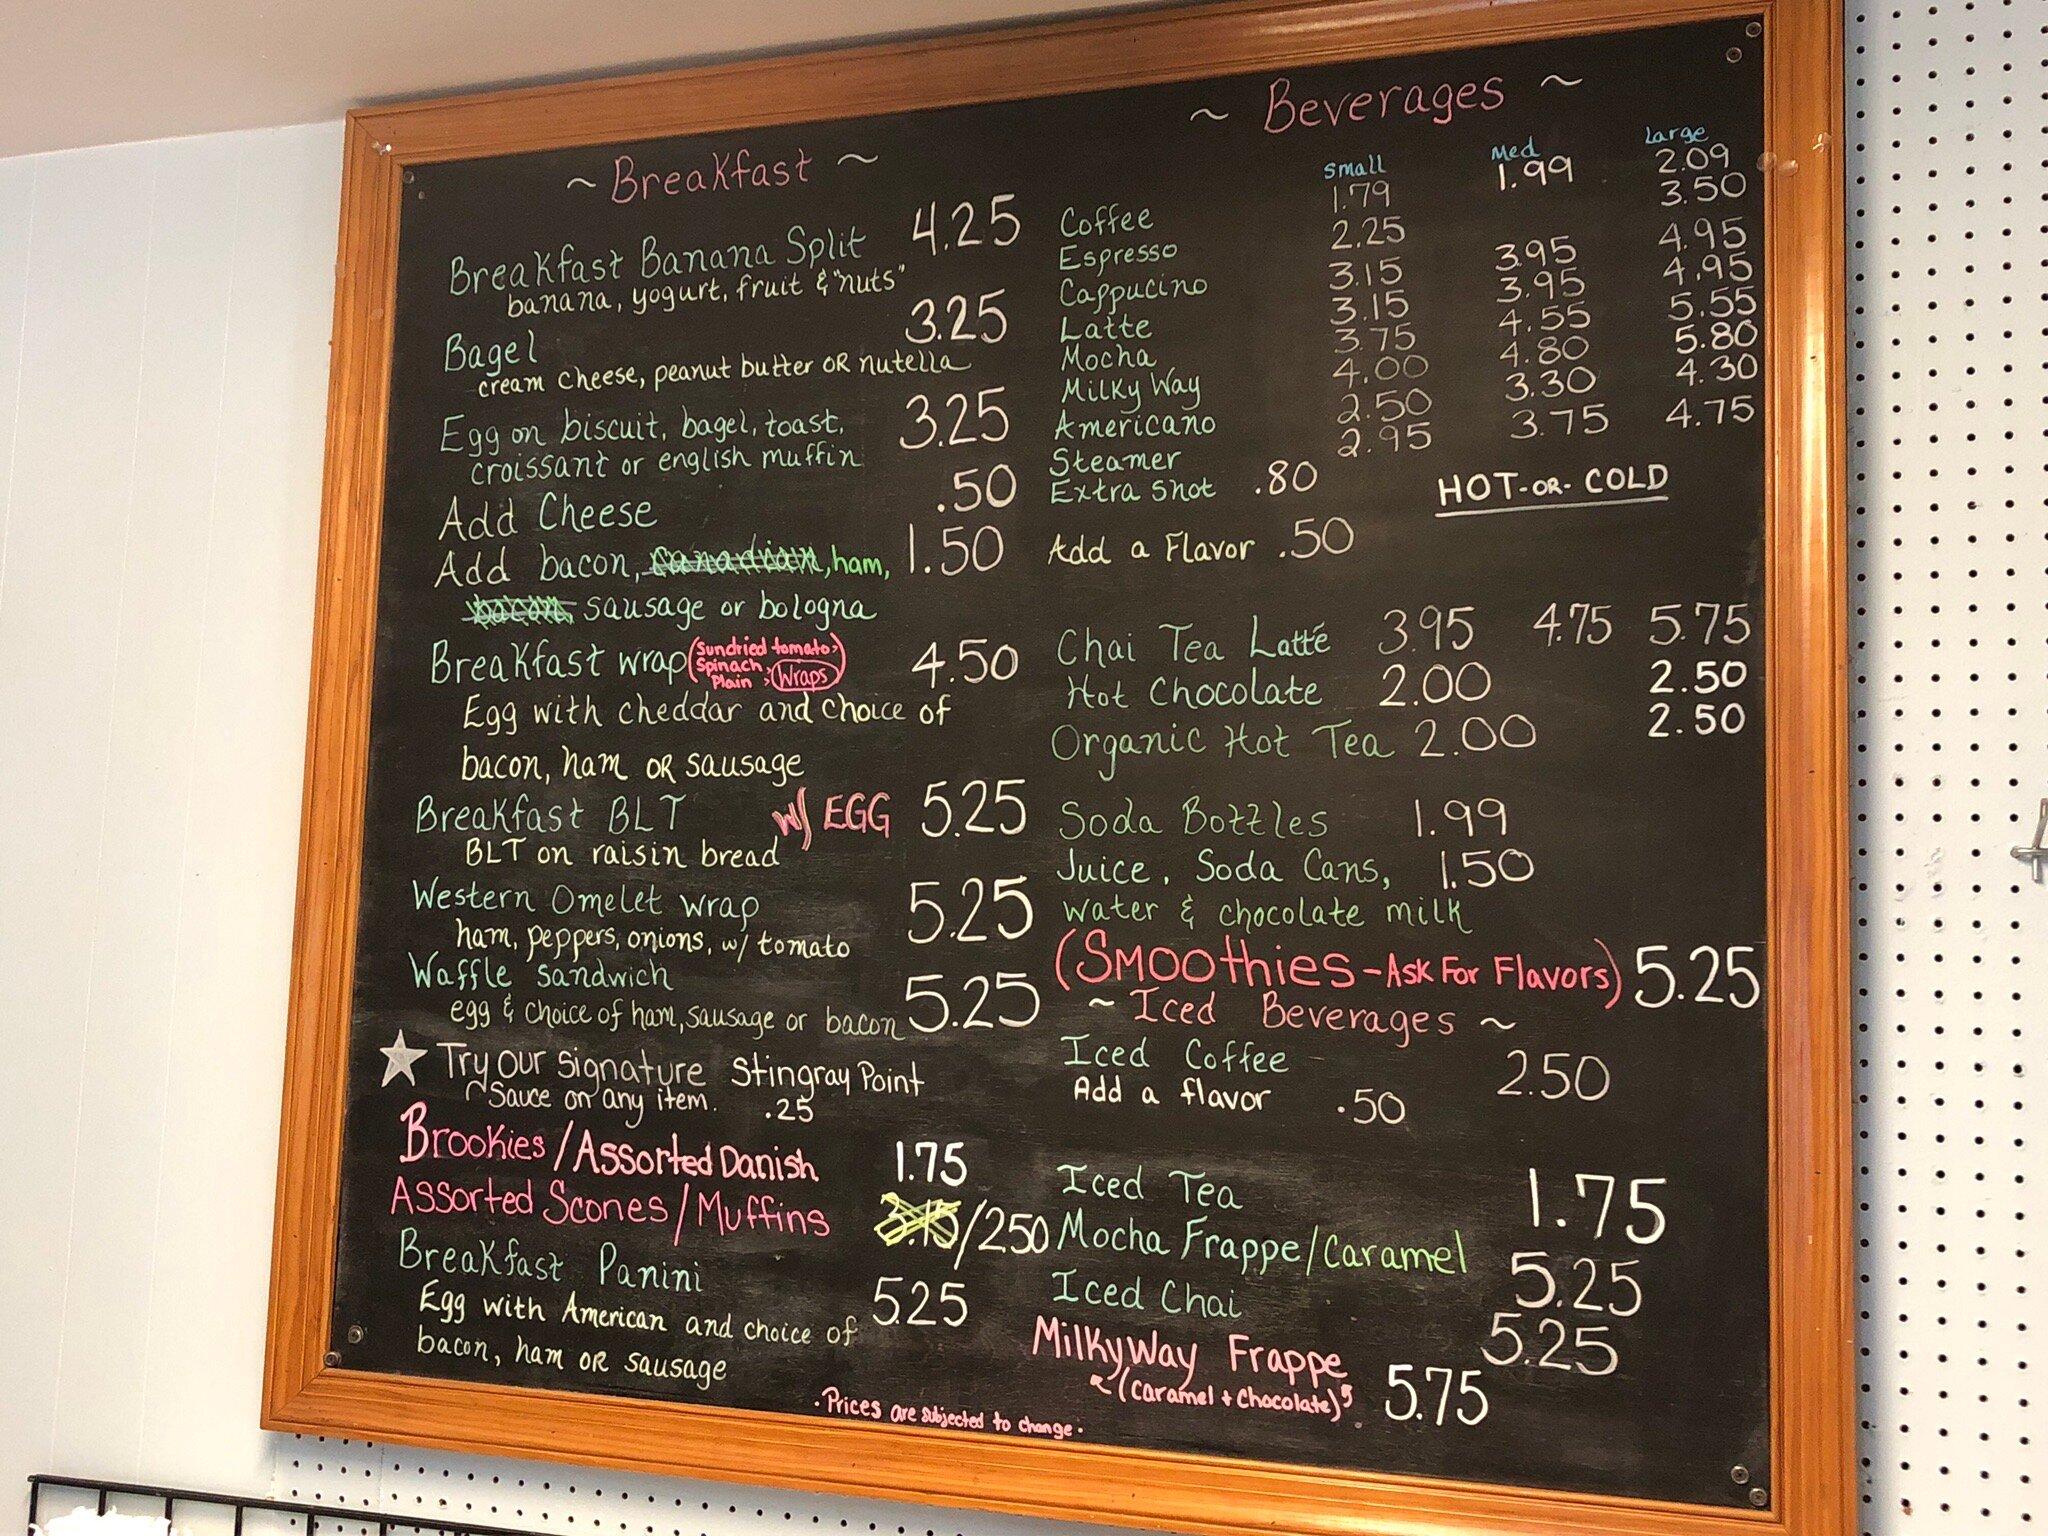 ~ Breakfast ~
Breakfast Banana Split 4.25
banana, yogurt, fruit & "nuts"
Bagel 3.25
cream cheese, peanut butter OR nutella
Egg on biscuit, bagel, toast, 3.25
croissant or english muffin
Add Cheese .50
Add bacon, canadian, ham, 1.50
bacon, sausage or bologna
Breakfast wrap (Sundried tomato, 4.50
Spinach,
Plain, Wraps)
Egg with cheddar and choice of
bacon, ham OR sausage
Breakfast BLT w/ EGG 5.25
BLT on raisin bread
Western Omelet wrap 5.25
ham, peppers, onions, w/ tomato
Waffle Sandwich 5.25
egg & choice of ham, sausage or bacon
Try our signature Stingray Point
Sauce on any item. .25
Brookies / Assorted Danish 1.75
Assorted Scones / Muffins 3.15/250
Breakfast Panini 5.25
Egg with American and choice of
bacon, ham OR sausage
~ Beverages ~
Small Med Large
Coffee 1.79 1.99 2.09
Espresso 2.25 3.50
Cappucino 3.15 3.95 4.95
Latte 3.15 3.95 4.95
Mocha 3.75 4.55 5.55
Milky Way 4.00 4.80 5.80
Americano 2.50 3.30 4.30
Steamer 2.95 3.75 4.75
Extra Shot .80
HOT-OR-COLD
Add a Flavor .50
Chai Tea Latté 3.95 4.75 5.75
Hot Chocolate 2.00 2.50
Organic Hot Tea 2.00 2.50
Soda Bottles 1.99
Juice, Soda Cans, 1.50
water & chocolate milk
(Smoothies - Ask For Flavors) 5.25
~ Iced Beverages ~
Iced Coffee 2.50
Add a flavor .50
Iced Tea 1.75
Mocha Frappe/Caramel 5.25
Iced Chai 5.25
MilkyWay Frappe 5.75
(Caramel + Chocolate)
· Prices are subjected to change ·